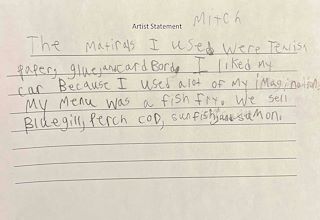 Mitch
Artist Statement
The Matirals I used were Tewish
paper, glue, and card Bord. I liked my
car Because I used alot of my imagination.
My Menu was a fish fry. We sell
Bluegill, Perch COD, sunfish, and salmon.